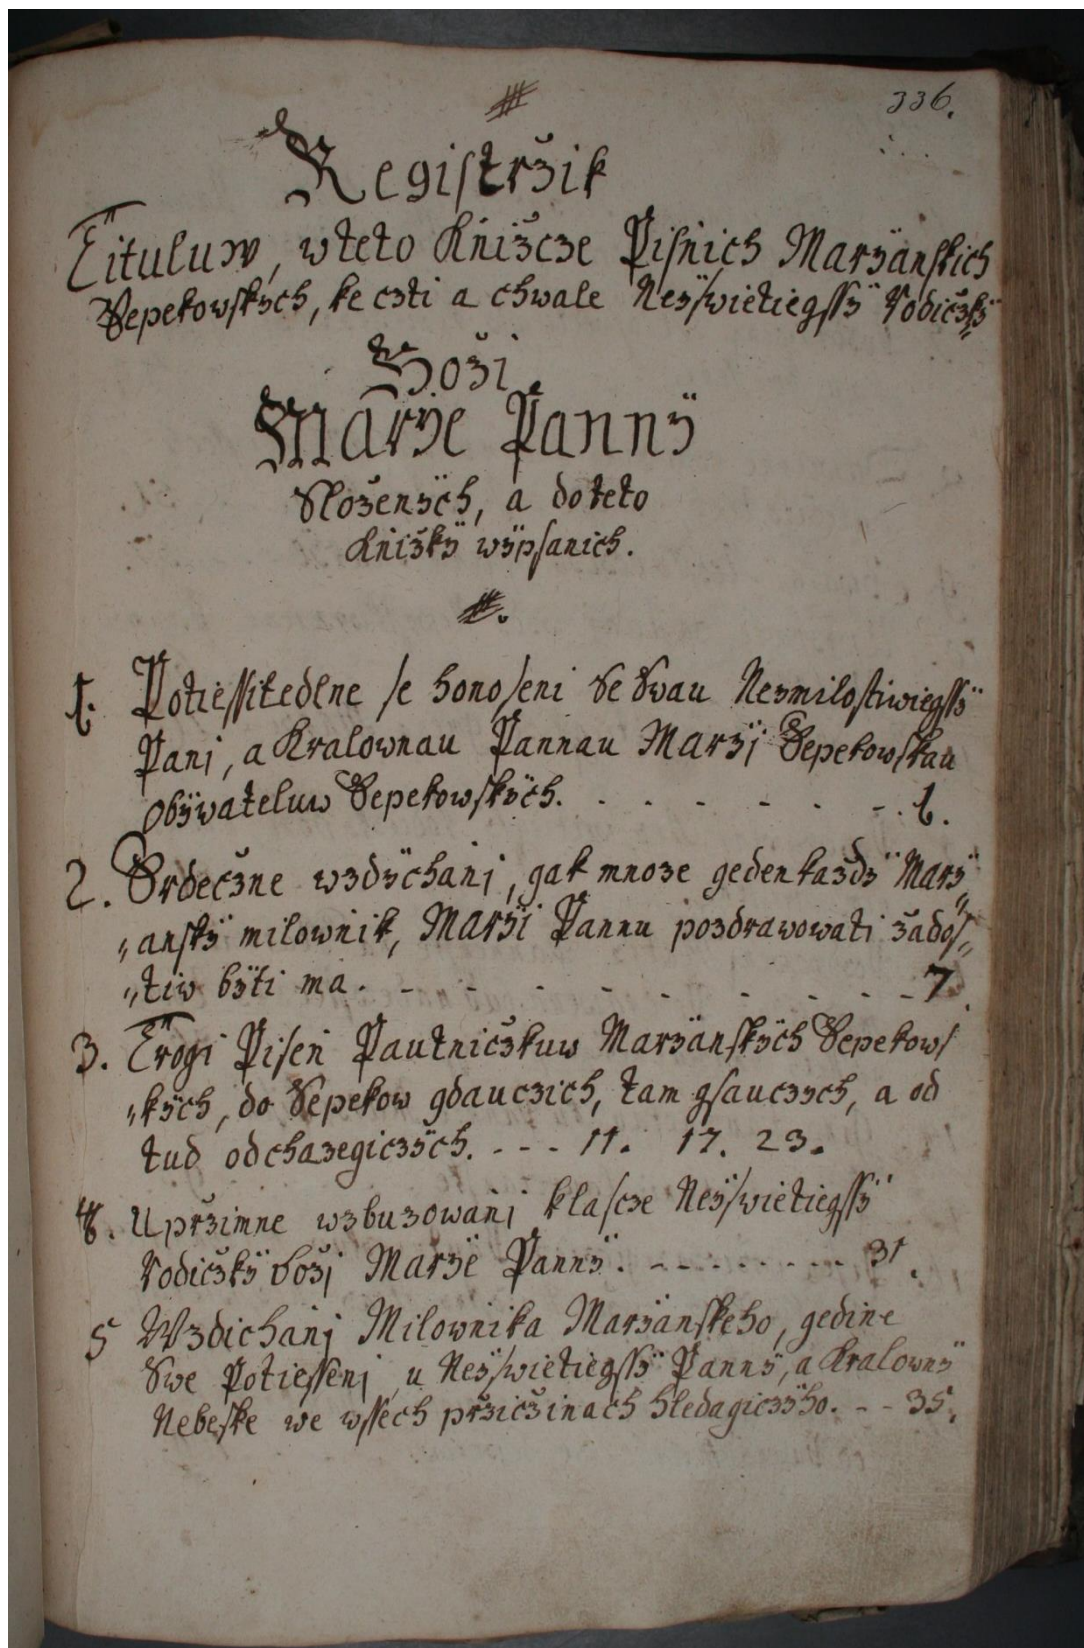 336.
Registrzik
Tituluw, wteto Knižcze Pisnich Maryanskich
Sepekowskych, ke czti a chwale Neyswietiegssy Rodičky
Boži
Marye Panny
Složenych, a doteto
Knižky wypsanich.
1. Potiessitedlne se honoseni Se Swau Neymilostiwiegssy
Pani, a Kralownau Pannau Maryi Sepekowskau
Obywateluw Sepekowskych. . - - - - - . 1.
2. Srdečzne wzdychanj, gak mnoze gedenkaždy Mary„
„ansky milownik, Maryi Pannu pozdrawowati žados„
„tiw byti ma. - - - - - - - - 7.
3. Trogi Piseň Pautničzkuw Maryanskych Sepekows
„kych, do Sepekow gdauczich, tam gsauczych, a od
tud odchazegiczych. - - - 11. 17. 23.
4. Uprzimne wzbuzowanj klascze Neyswietiegssy
Rodičky boži Marye Panny. - - - - - - - - 31.
5 Wzdichanj Milownika Maryanskeho, gedine
Swe Potiessenj u Neyswietiegssy Panny, a Kralowny
Nebeske we wssech przičzinach hledagiczyho. - - 35.